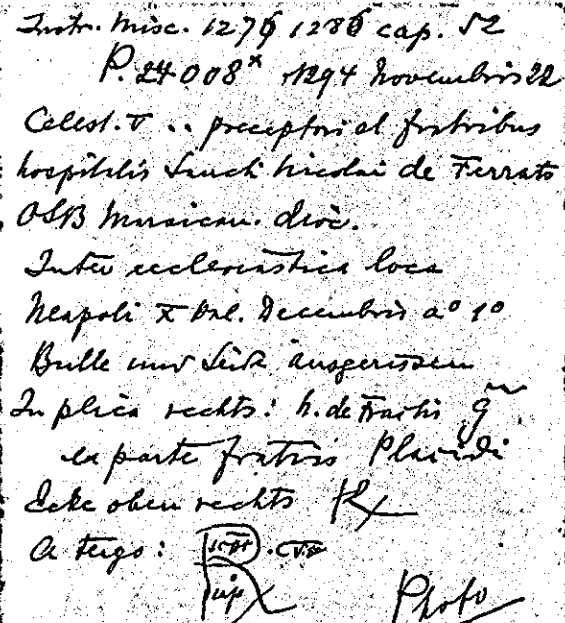 Instr. Misc. 1276 1286 cap. 52
P. 24008ˣ 1294 Novembris 22
Celest. V .. preceptori et fratribus
hospitalis Sancti Nicolai de Ferrato
OSB Marsican. dioc.
Inter ecclesiastica loca
Neapoli X kal. Decembris aº 1º
Bulle und Seide ausgerissen
In plica rechts: N. de Trachi
ex parte fratris Placidi
Ecke oben rechts
A tergo:
Photo